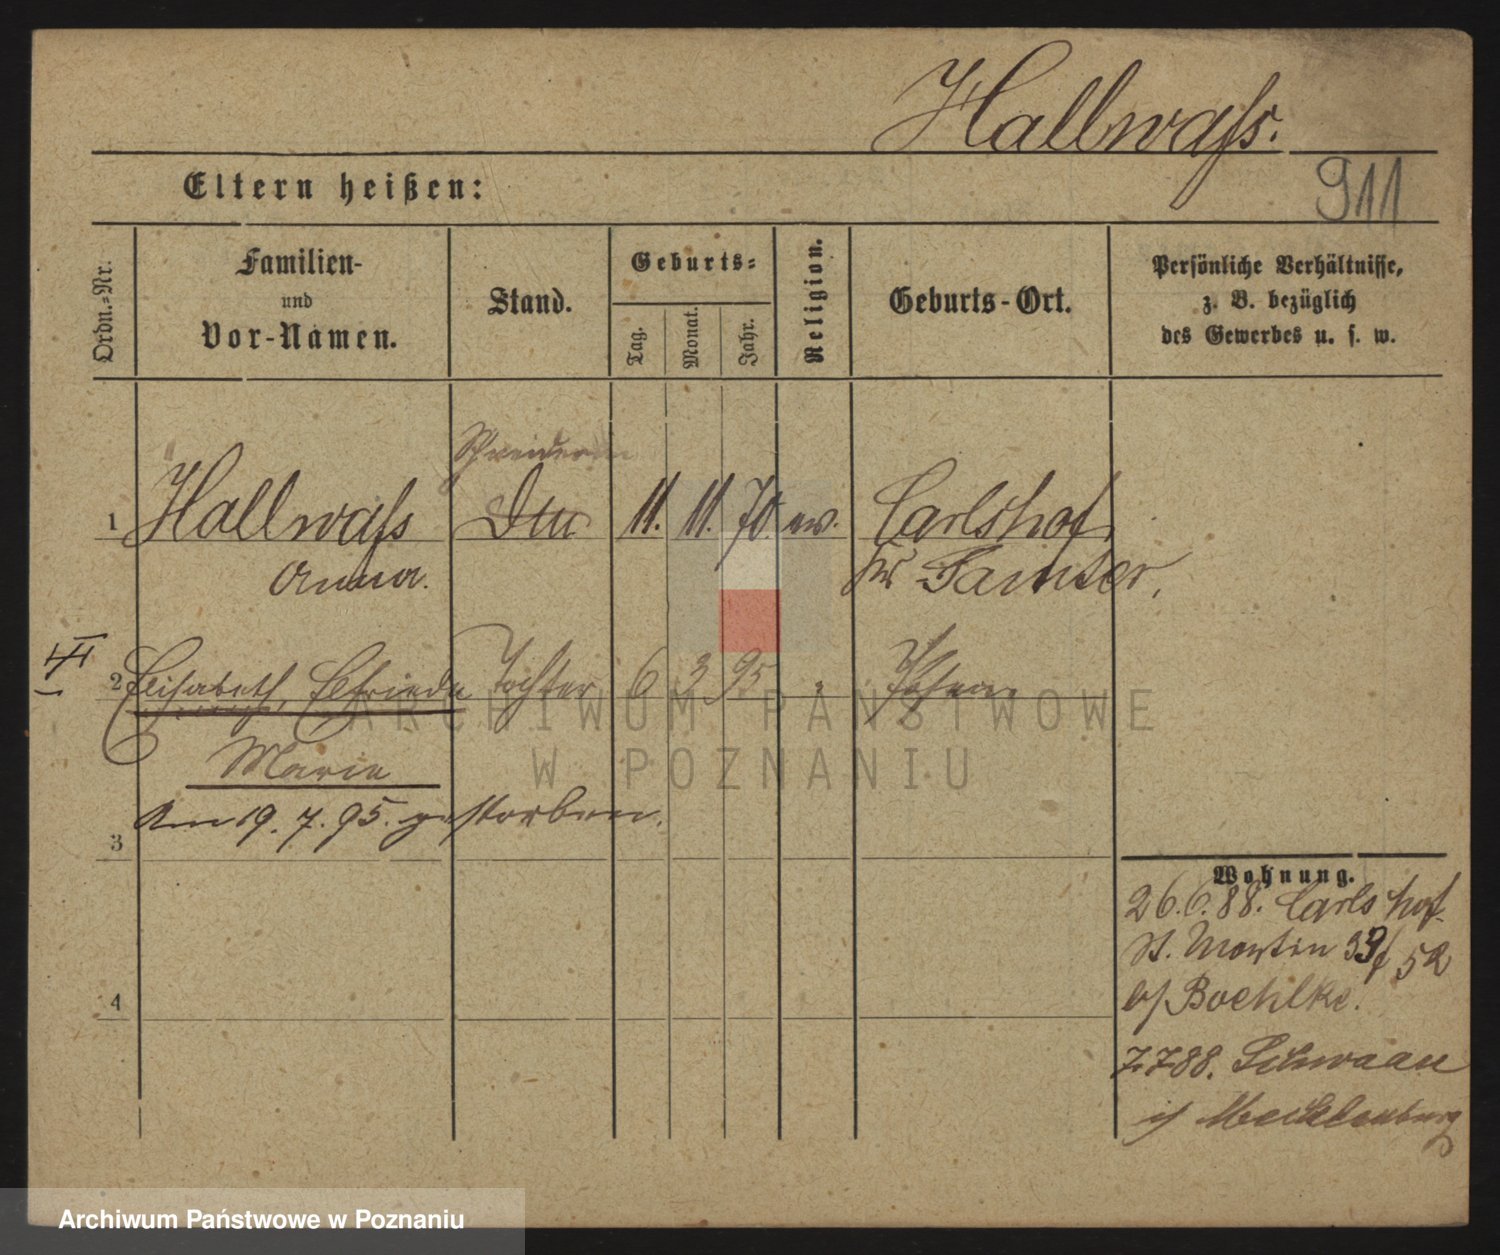 Hallwaſs.
911
Eltern heißen:
Ordn.-Nr.
Familien-
und
Vor-Namen.
Stand.
Geburts-
Tag.
Monat.
Jahr.
Religion.
Geburts-Ort.
Persönliche Verhältnisse,
z. B. bezüglich
des Gewerbes u. s. w.
Schneiderin
1 Hallwaſs 11. 11. 70. ev. Carlshof,
Anna. Kr Samter.
2 Elisabeth, Elfriede Tochter 6 3 95 Posen
Marie
Am 19. 7. 95. gestorben.
3
4
Wohnung.
26.6.88. Carlshof.
St. Martin 52
b/ Boehlke.
7.788. Schwaan
i/ Mecklenburg
ARCHIWUM PAŃSTWOWE
W POZNANIU
Archiwum Państwowe w Poznaniu